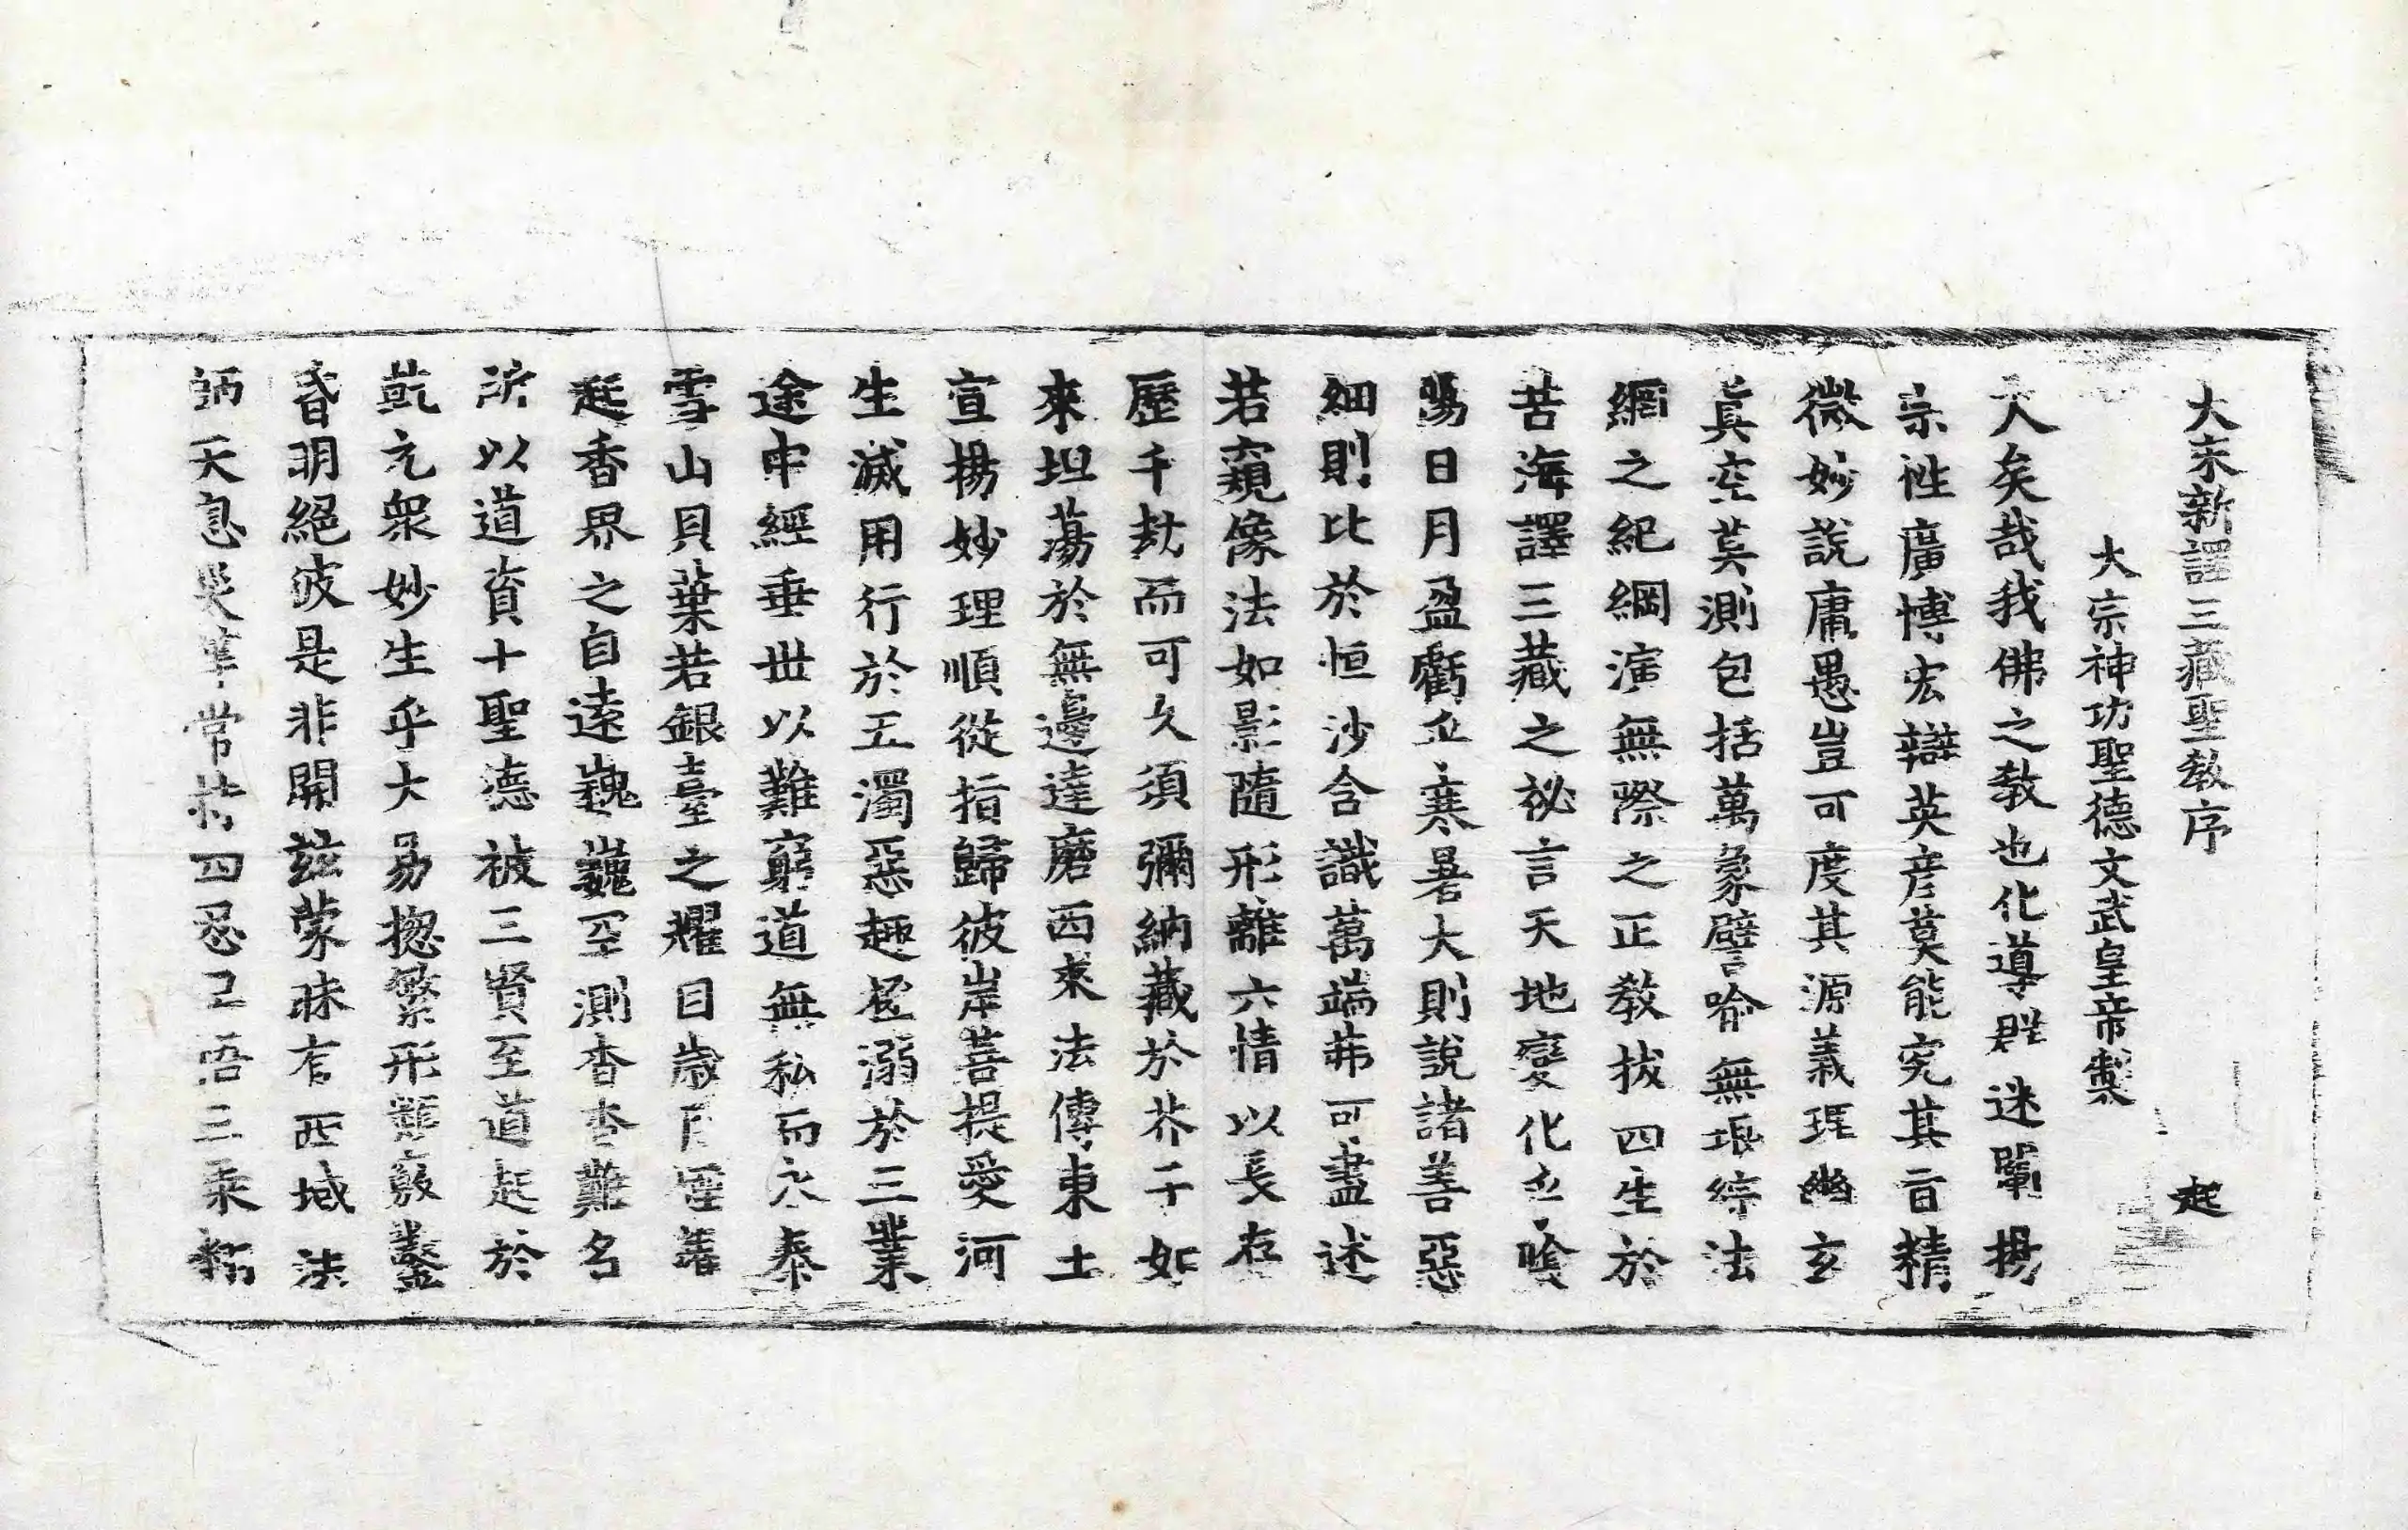 大宋新譯三藏聖教序 起
太宗神功聖德文武皇帝製
大矣哉我佛之教也化導群迷闡揚
宗性廣博宏辯英彦莫能究其旨精
微妙說庸愚豈可度其源義理幽玄
真空莫測包括萬象譬喻無垠綜法
網之紀綱演無際之正教拔四生於
苦海譯三藏之祕言天地變化乎陰
陽日月盈虧乎寒暑大則說諸善惡
細則比於恒沙含識萬端弗可盡述
若窺像法如影隨形離六情以長存
歷千劫而可久須彌納藏於芥子如
來坦蕩於無邊達磨西來法傳東土
宣揚妙理順從指歸彼岸菩提愛河
生滅用行於五濁惡趣拯溺於三業
途中經垂世以難窮道無私而永泰
雪山貝葉若銀臺之耀目歲月煙蘿
起香界之自遠巍巍罕測杳杳難名
所以道資十聖德被三賢至道起於
乾元衆妙生乎大易揔繁形類竅鑿
昏明絕彼是非開茲蒙昧有西域法
師天息災等常持四忍早悟三乘